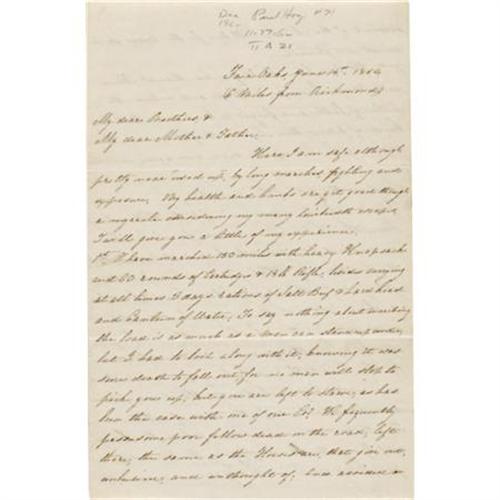 Dec Paul Hoy #21
Fair Oaks June 14th, 1864
6 Miles from Richmond
My dear Brothers, &
My dear Mother & Father,
Here I am safe although
pretty near used up, by long marches, fighting and
exposure, My health and limbs are yet good though
a miracle considering my many hairbreadth escapes,
I will give you a little of my experience.
1st I have marched 150 miles with heavy Knapsack
and 60 rounds of Cartridges & 13 lb Rifle, besides carrying
at all times 3 days rations of Salt Beef & hard bread
and Canteen of Water, To say nothing about marching
the load is as much as a man can stand up under,
but I had to look along with it, knowing it was
sure death to fall out, for no man will stop to
pick you up, but you are left to starve, as has
been the case with one of our Co. We frequently
pass some poor fellow dead on the road, left
there, the same as the Horses are, that give out,
and unthought of, once assisted